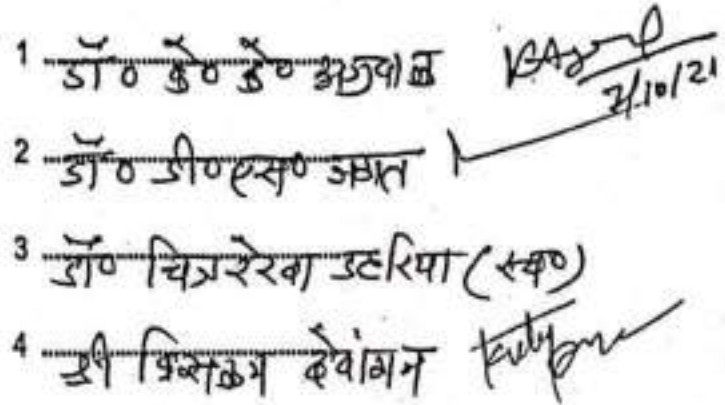 1 डॉ० के० के० अग्रवाल
2/10/21
2 डॉ० डी० एस० जगत
3 डॉ० चित्ररेखा डटरिया (स्व०)
4 श्री देवांगन